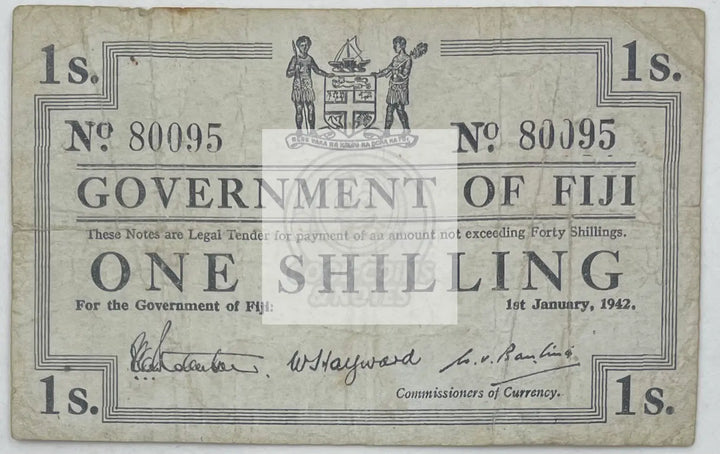 1s.
1s.
Nº 80095
Nº 80095
GOVERNMENT OF FIJI
These Notes are Legal Tender for payment of an amount not exceeding Forty Shillings.
ONE SHILLING
For the Government of Fiji:
1st January, 1942.
W S Hayward
Commissioners of Currency.
1s.
1s.